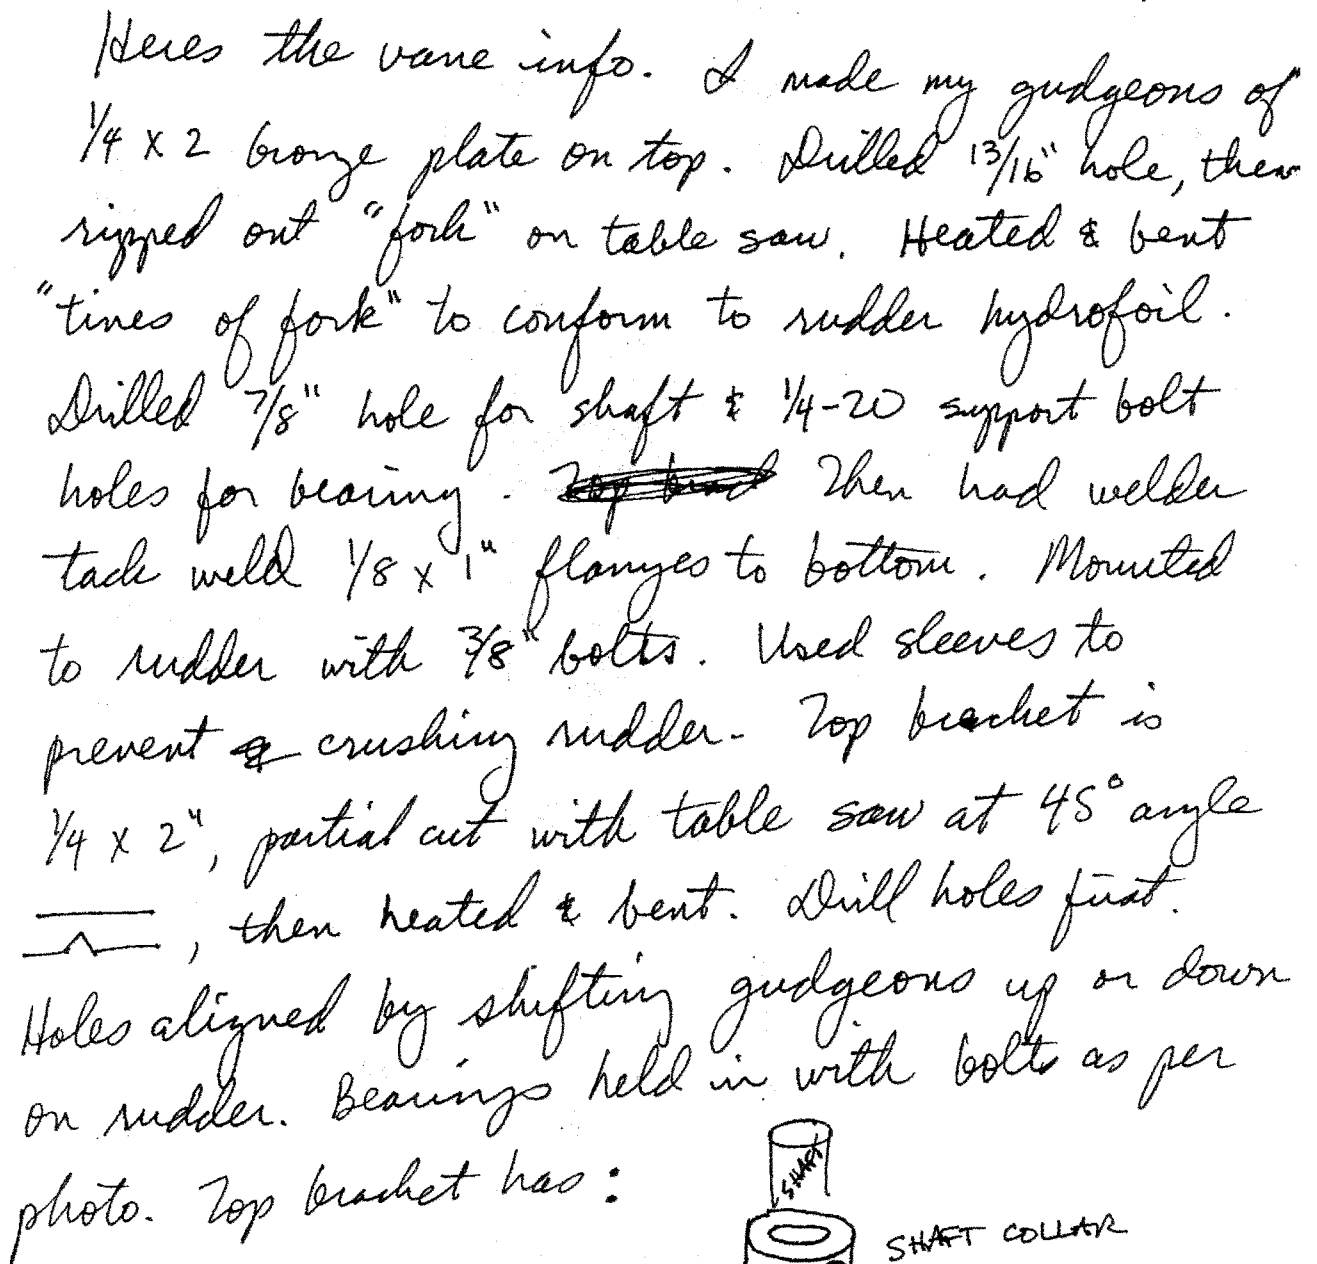 Heres the vane info. I made my gudgeons of
1/4 x 2 bronze plate on top. Drilled 13/16" hole, then
ripped out "fork" on table saw. Heated & bent
"tines of fork" to conform to rudder hydrofoil.
Drilled 7/8" hole for shaft & 1/4-20 support bolt
holes for bearing. Then had welder
tack weld 1/8 x 1" flanges to bottom. Mounted
to rudder with 3/8" bolts. Used sleeves to
prevent crushing rudder. Top bracket is
1/4 x 2", partial cut with table saw at 45° angle
, then heated & bent. Drill holes first.
Holes aligned by shifting gudgeons up or down
on rudder. Bearings held in with bolts as per
photo. Top bracket has:
SHAFT
SHAFT COLLAR